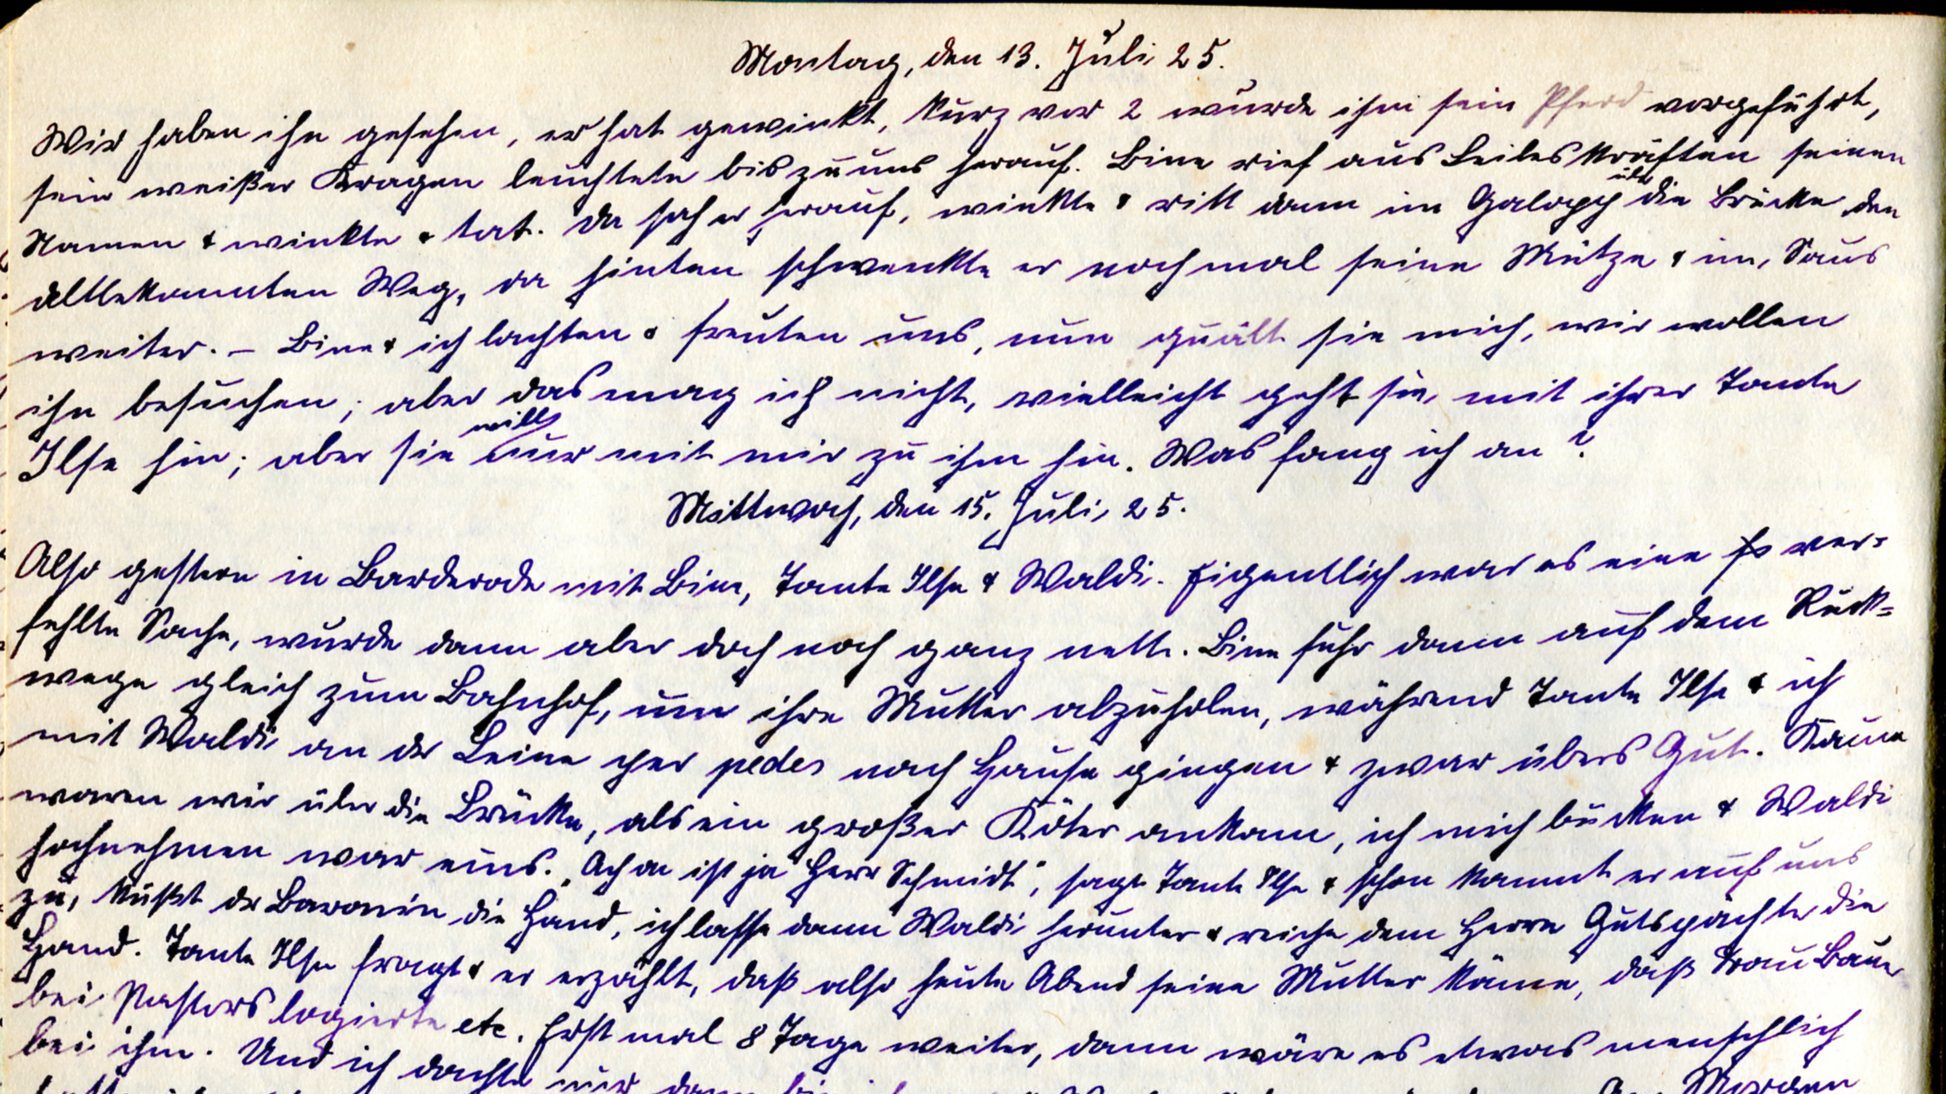 Montag, den 13. Juli 25.
Wir haben ihn gesehen, er hat gewinkt, kurz vor 2 wurde ihm sein Pferd vorgeführt,
sein weißer Kragen leuchtete bis zu uns herauf. Bine rief aus Leibeskräften seinen
Namen & winkte & tat. Da sah er herauf, winkte & ritt dann im Galopp über die Brücke den
altbekannten Weg, da hinten schwenkte er nochmal seine Mütze & im Saus
weiter. – Bine & ich lachten & freuten uns, nun quält sie mich, wir wollen
ihn besuchen; aber das mag ich nicht, vielleicht geht sie mit ihrer Tante
Ilse hin; aber sie will nur mit mir zu ihm hin. Was fang ich an?
Mittwoch, den 15. Juli 25.
Also gestern in Barderode mit Bine, Tante Ilse & Waldi. Eigentlich war es eine ver-
fehlte Sache, wurde dann aber doch noch ganz nett. Bine fuhr dann auf dem Rück-
wege gleich zum Bahnhof, um ihre Mutter abzuholen, während Tante Ilse & ich
mit Waldi an der Leine per pedes nach Hause gingen & zwar übers Gut. Kaum
waren wir über die Brücke, als ein großer Köter ankam, ich mich bücken & Waldi
hochnehmen war eins. „Ach da ist ja Herr Schmidt", sagt Tante Ilse & schon kommt er auf uns
zu, küßt der Baronin die Hand, ich lasse dann Waldi herunter & reiche dem Herrn Gutspächter die
Hand. Tante Ilse fragt & er erzählt, daß also heute Abend seine Mutter käme, daß Frau Baum
bei Pastors logierte etc. Erst mal 8 Tage weiter, dann wäre es etwas menschlich
bei ihm. Und ich dachte nur dann
Morgen